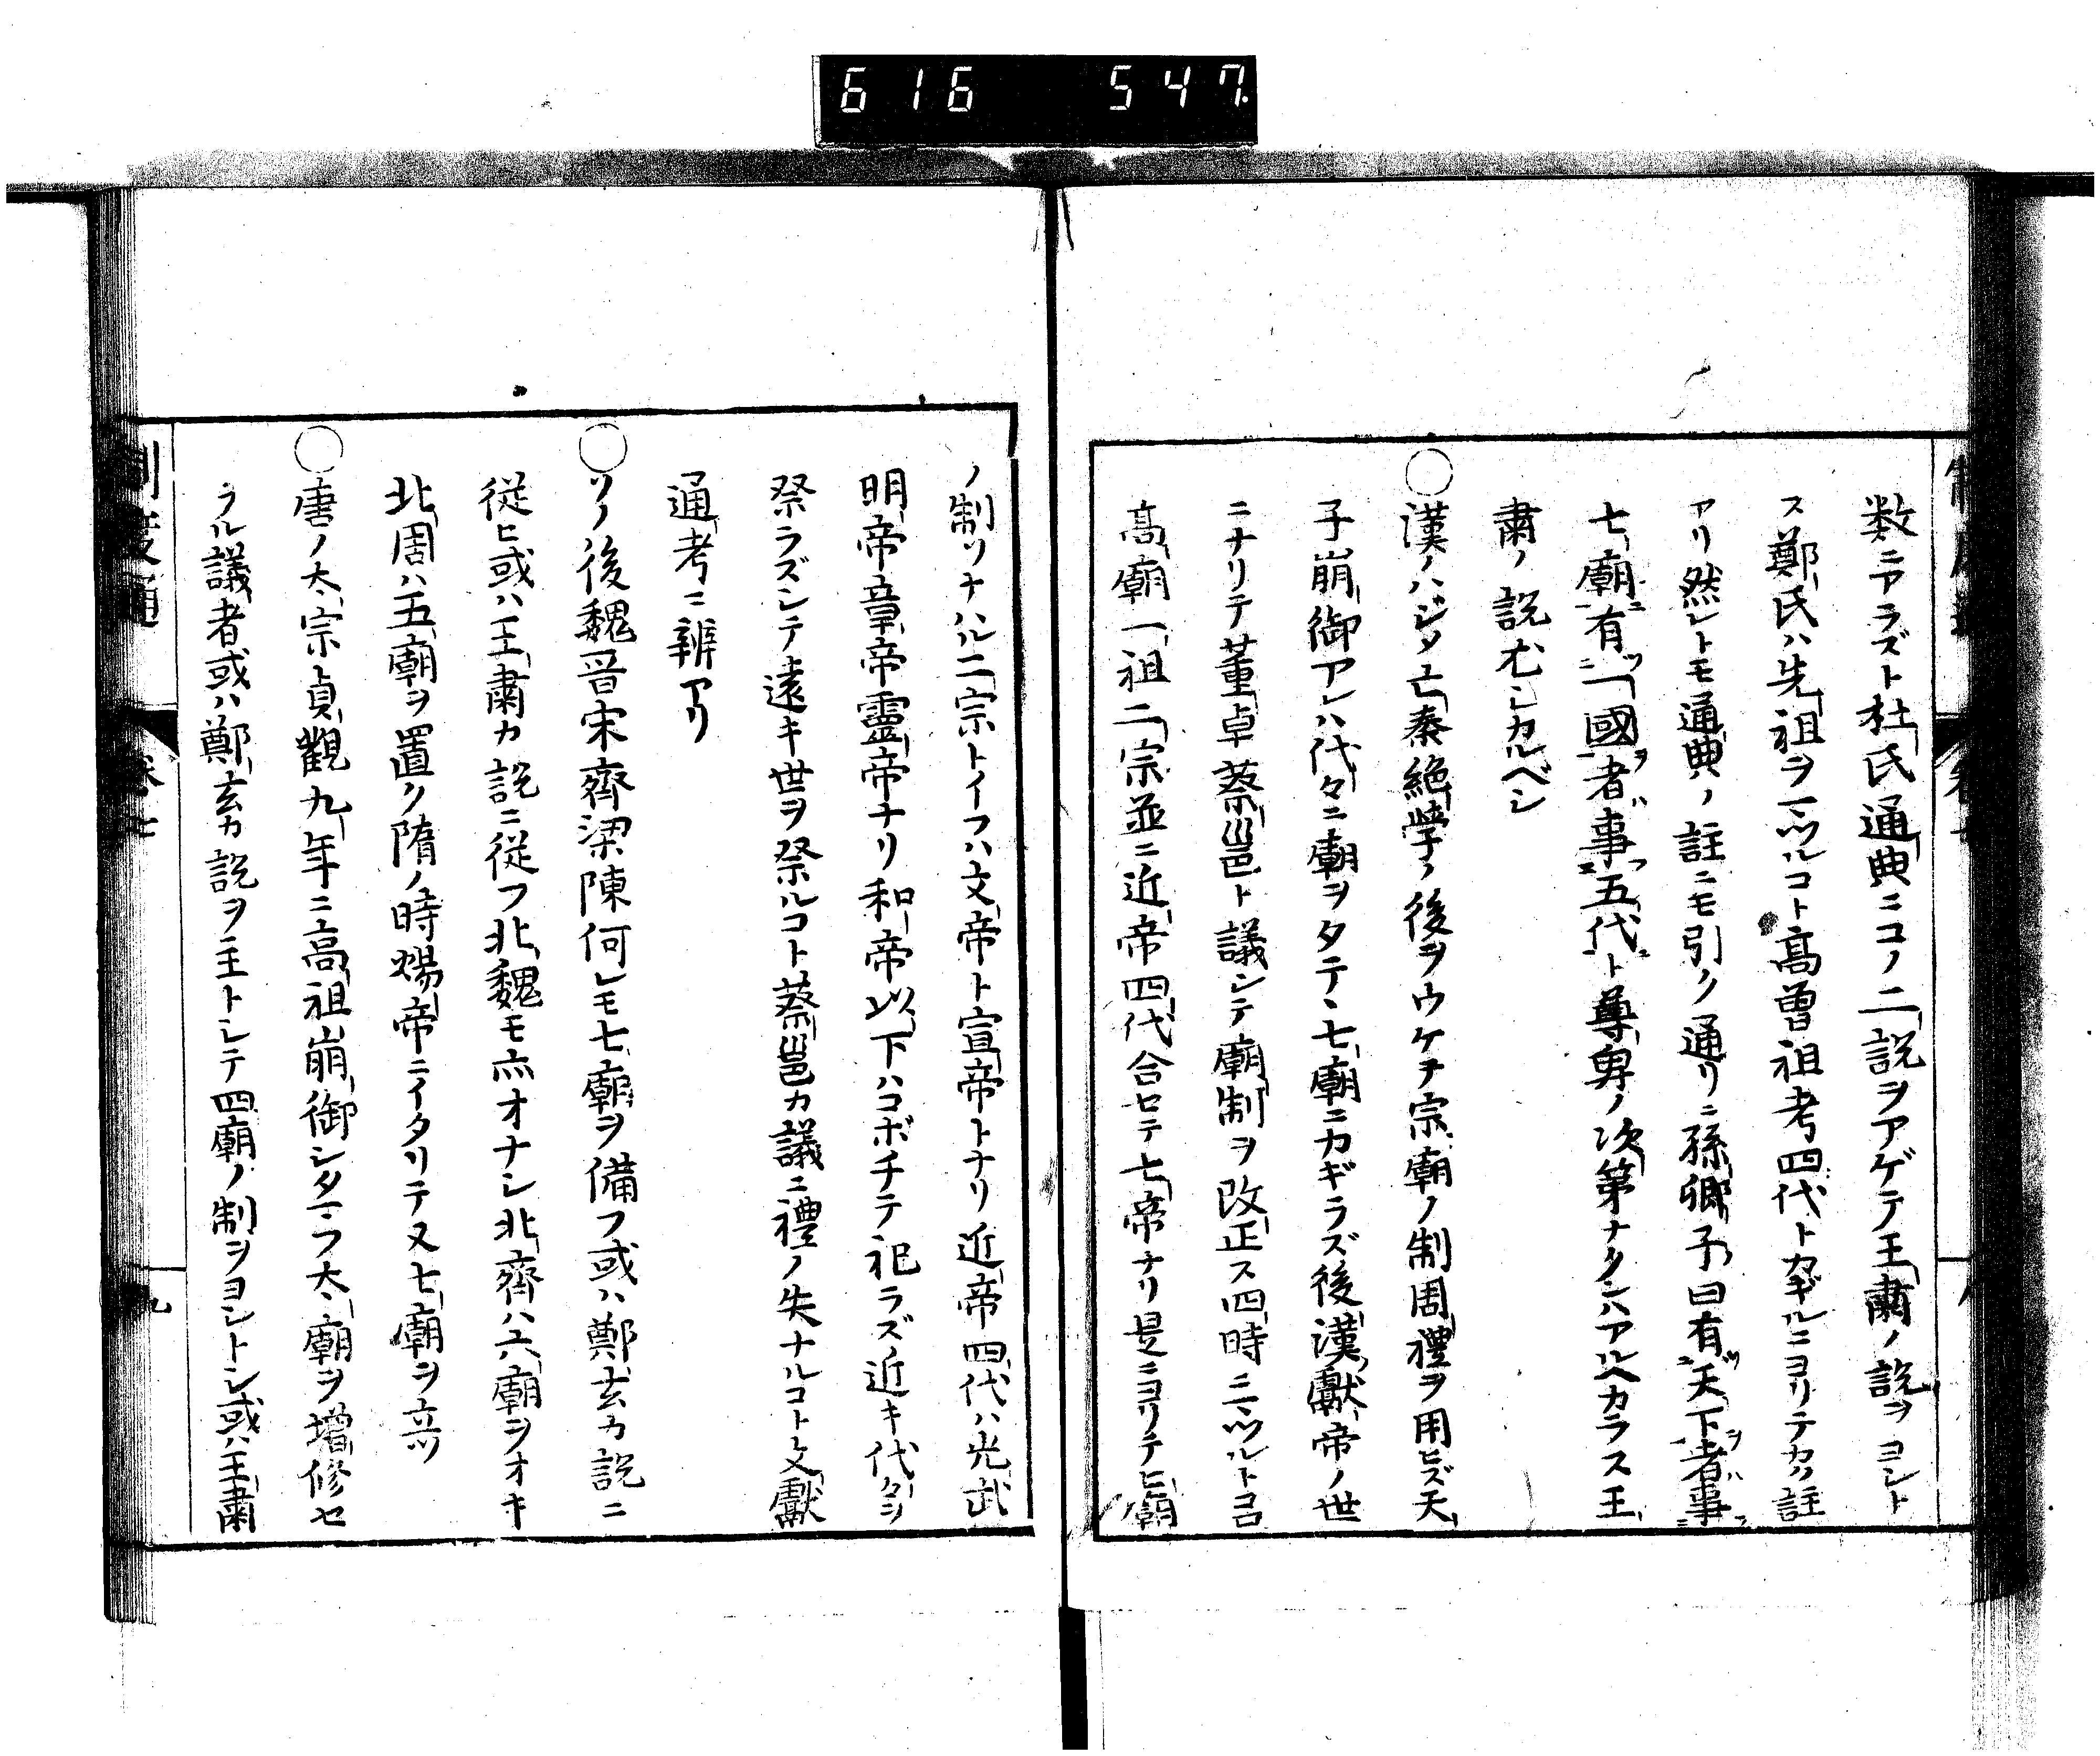 616 547.
数ニアラズト杜氏通典ニコノ二説ヲアゲテ王肅ノ説ヲヨシト
ス鄭氏ハ先祖ヲマツルコト高曽祖考四代トカギルニヨリテカク註
アリ然レトモ通典ノ註ニモ引ク通リニ孫卿子曰有天下者事
七廟有一國者事五代ト尊卑ノ次第ナクンハアルヘカラス王
肅ノ説尤シカルベシ
○漢ノハジメ亡秦絶學ノ後ヲウケテ宗廟ノ制周禮ヲ用ヒズ天
子崩御アレハ代々ニ廟ヲタテヽ七廟ニカギラズ後漢獻帝ノ世
ニナリテ董卓蔡邕ト議シテ廟制ヲ改正ス四時ニマツルトコロ
高廟一祖二宗並ニ近帝四代合セテ七帝ナリ是ニヨリテヒ廟
ノ制ソナハル二宗トイフハ文帝ト宣帝トナリ近帝四代ハ光武
明帝章帝靈帝ナリ和帝以下ハコボチテ祀ラズ近キ代々ヲ
祭ラズシテ遠キ世ヲ祭ルコト蔡邕カ議ニ禮ノ失ナルコト文獻
通考ニ辨アリ
○ソノ後魏晋宋齊梁陳何レモ七廟ヲ備フ或ハ鄭玄カ説ニ
從ヒ或ハ王肅カ説ニ從フ北魏モ亦オナシ北齊ハ六廟ヲオキ
北周ハ五廟ヲ置ク隋ノ時煬帝ニイタリテ又七廟ヲ立ツ
○唐ノ太宗貞觀九年ニ高祖崩御シタマフ太廟ヲ增修セ
ラル議者或ハ鄭玄カ説ヲ主トシテ四廟ノ制ヲヨシトシ或ハ王肅
制度通 卷七 九